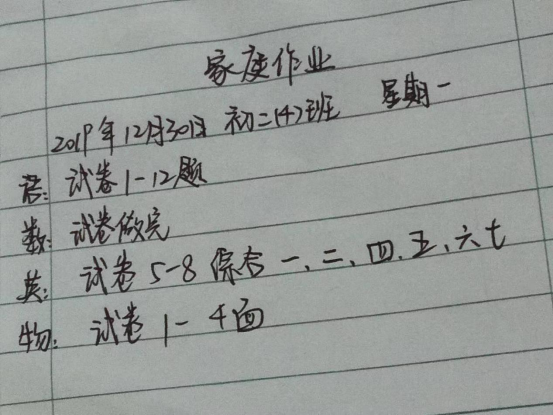 家庭作业
2019年12月30日 初二(4)班 星期一
语: 试卷1-12题
数: 试卷做完
英: 试卷5-8 综合一、二、四、五、六七
物: 试卷1-4面